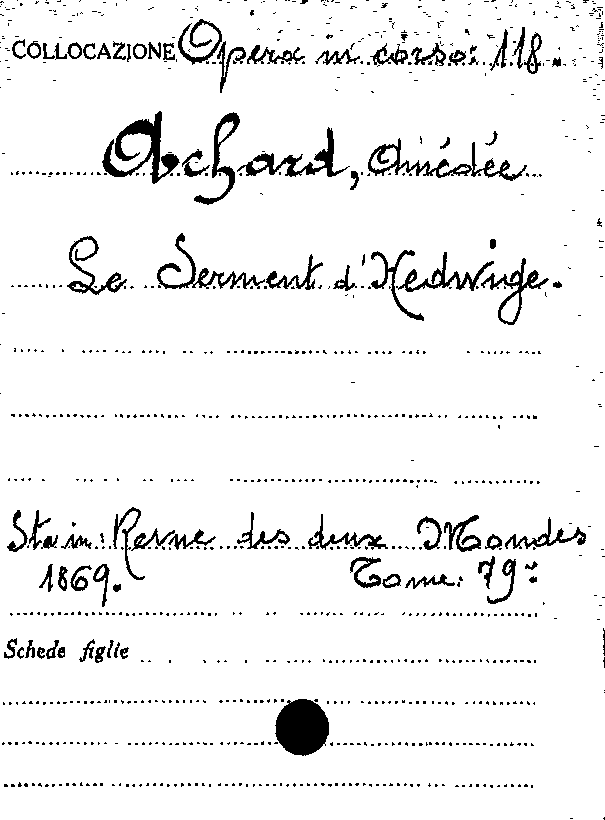 COLLOCAZIONE Opera in corso: 118.
Achard, Amédée
Le Serment d'Hedwige.
Sta in: Revue des deux Mondes
1869. Tome: 79°
Schede figlie